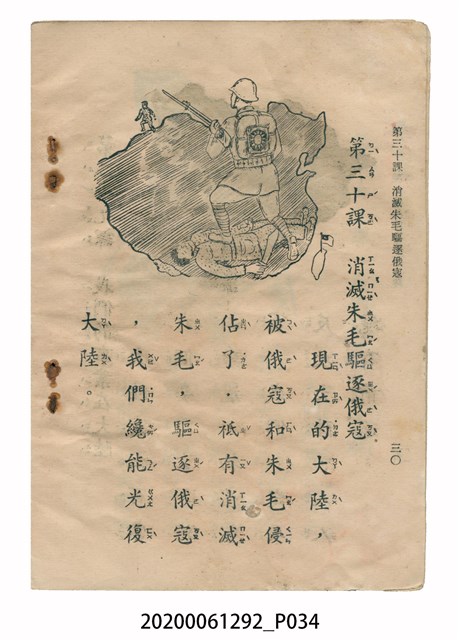 第三十課 消滅朱毛驅逐俄寇
三〇
第三十課 消滅朱毛驅逐俄寇。
現在的大陸，
被俄寇和朱毛侵
佔了．祗有消滅
朱毛，驅逐俄寇
，我們纔能光復
大陸。
20200061292_P034